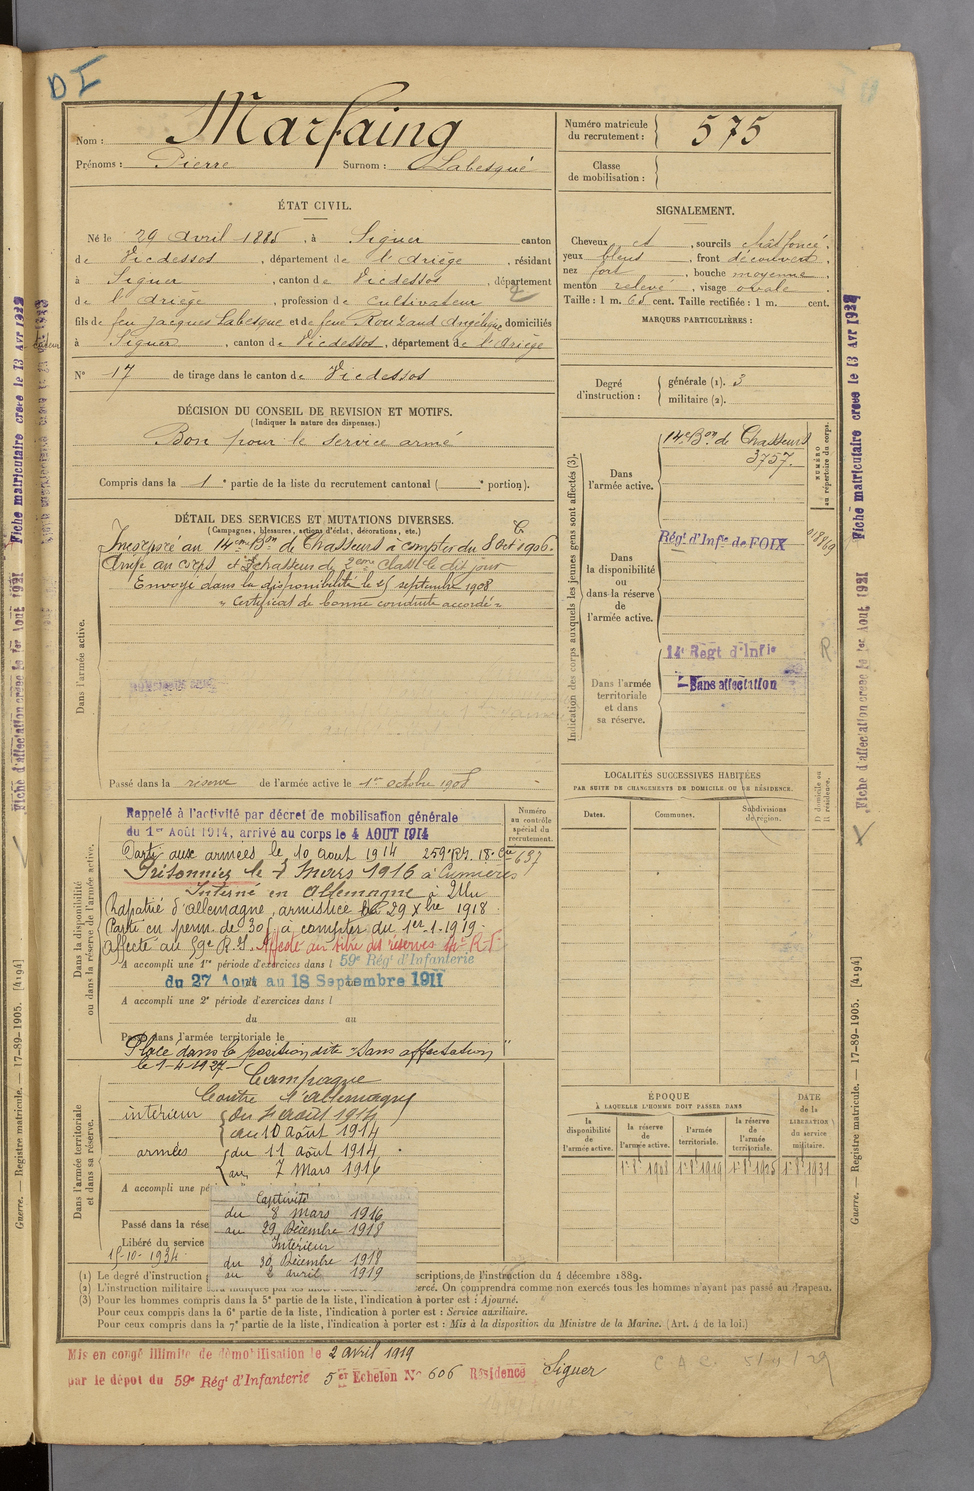 DI
Nom : Marfaing
Prénoms : Pierre Surnom : Labesqué
Numéro matricule du recrutement : 575
Classe de mobilisation :
ÉTAT CIVIL.
Né le 29 Avril 1885, à Siguer canton
de Vicdessos, département de l'Ariège, résidant
à Siguer, canton de Vicdessos, département
de l'Ariège, profession de Cultivateur
fils de feu Jacques Labesque et de feue Rouzaud Angélique domiciliés
à Siguer, canton de Vicdessos, département de l'Ariège
N° 17 de tirage dans le canton de Vicdessos
SIGNALEMENT.
Cheveux et, sourcils chât foncé.
yeux bleus, front découvert.
nez fort, bouche moyenne.
menton relevé, visage ovale.
Taille : 1 m. 65 cent. Taille rectifiée : 1 m. cent.
MARQUES PARTICULIÈRES :
Degré d'instruction : générale (1). 3
militaire (2).
DÉCISION DU CONSEIL DE REVISION ET MOTIFS.
(Indiquer la nature des dispenses.)
Bon pour le service armé
Compris dans la 1e partie de la liste du recrutement cantonal ( e portion).
DÉTAIL DES SERVICES ET MUTATIONS DIVERSES.
(Campagnes, blessures, actions d'éclat, décorations, etc.)
Dans l'armée active.
Incorporé au 14eme Bon de Chasseurs à compter du 8 Oct 1906.
Arrivé au corps et chasseur de 2eme classe le dit jour
Envoyé dans la disponibilité le 25 septembre 1908
" Certificat de bonne conduite accordé "
Passé dans la réserve de l'armée active le 1er octobre 1908
Indication des corps auxquels les jeunes gens sont affectés (3).
NUMÉRO au répertoire du corps.
Dans l'armée active.
14e Bon de Chasseurs
3757.
Dans la disponibilité ou dans la réserve de l'armée active.
Régt d'Infie de FOIX
018869
R
Dans l'armée territoriale et dans sa réserve.
14e Regt d'Infie
Sans affectation
LOCALITÉS SUCCESSIVES HABITÉES
PAR SUITE DE CHANGEMENTS DE DOMICILE OU DE RÉSIDENCE.
Dates. Communes. Subdivisions de région. D domicile ou R résidence.
Dans la disponibilité ou dans la réserve de l'armée active.
Numéro au contrôle spécial du recrutement.
637
Rappelé à l'activité par décret de mobilisation générale
du 1er Août 1914, arrivé au corps le 4 AOUT 1914
Parti aux armées le 10 aout 1914 259e R.I. 18e Cie
Prisonnier le 7 Mars 1916 à Cumières
Interné en Allemagne à Ulm
Rapatrié d'allemagne, armistice le 29 Xbre 1918
Parti en perm. de 30 j à compter du 1er-1-1919
Affecté au 59e R.I. Affecté au titre des réserves
A accompli une 1re période d'exercices dans l 59e Régt d'Infanterie
du 27 Aout au 18 Septembre 1911
A accompli une 2e période d'exercices dans l
du au
Passé dans l'armée territoriale le
Placé dans la position dite "Sans affectation"
le 1-4-1927
Dans l'armée territoriale et dans sa réserve.
Campagne
Contre l'allemagne
intérieur du 4 aout 1914
au 10 août 1914
armées du 11 août 1914
au 7 Mars 1916
A accompli une pé
Captivité
du 8 mars 1916
au 29 Décembre 1918
Intérieur
du 30 Décembre 1918
au 2 avril 1919
Passé dans la rése
Libéré du service
15-10-1934
ÉPOQUE
À LAQUELLE L'HOMME DOIT PASSER DANS
la disponibilité de l'armée active. la réserve de l'armée active. l'armée territoriale. la réserve de l'armée territoriale.
DATE de la LIBÉRATION du service militaire.
1er 8bre 1908 1er 8bre 1919 1er 8bre 1925 1er 8bre 1931
(1) Le degré d'instruction scriptions, de l'instruction du 4 décembre 1889.
(2) L'instruction militaire sera indiquée par les mots : exercé. On comprendra comme non exercés tous les hommes n'ayant pas passé au drapeau.
(3) Pour les hommes compris dans la 5e partie de la liste, l'indication à porter est : Ajourné.
Pour ceux compris dans la 6e partie de la liste, l'indication à porter est : Service auxiliaire.
Pour ceux compris dans la 7e partie de la liste, l'indication à porter est : Mis à la disposition du Ministre de la Marine. (Art. 4 de la loi.)
Mis en congé illimité de démobilisation le 2 avril 1919
par le dépot du 59e Régt d'Infanterie 5er Echelon N° 606 Résidence Siguer
Fiche matriculaire créée le 13 Avr 1922
Fiche d'affectation créée le 1er Aout 1921
Guerre. — Registre matricule. — 17-89-1905. [4194]
Fiche matriculaire créée le 13 Avr 1922
Fiche d'affectation créée le 1er Aout 1921
Guerre. — Registre matricule. — 17-89-1905. [4194]